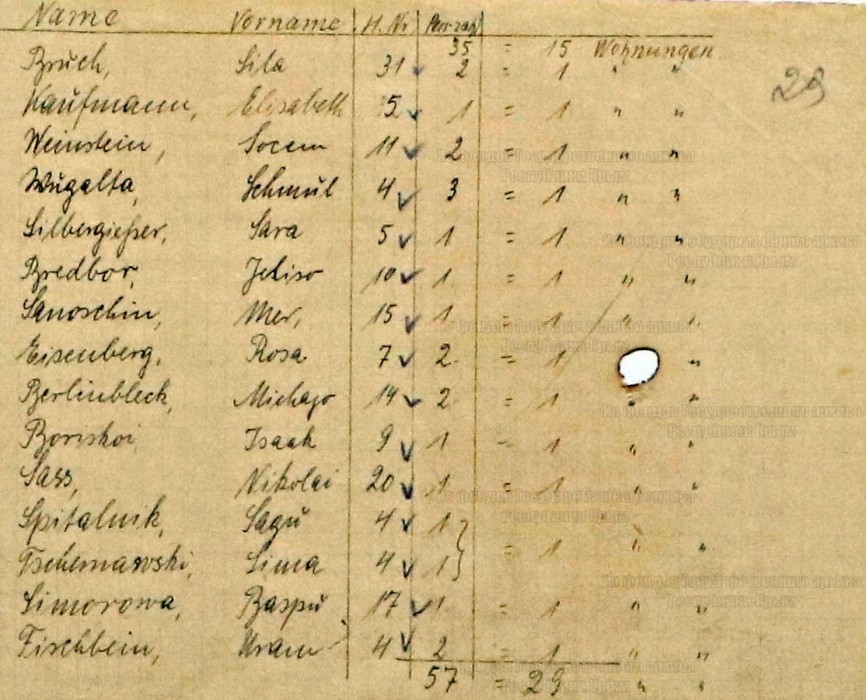 Name Vorname H. Nr Pers.zag
35 = 15 Wohnungen
Bruch, Sila 31 ✓ 2 = 1 " "
29
Kaufmann, Elisabeth 5 ✓ 1 = 1 " "
Weinstein, Socem 11 ✓ 2 = 1 " "
Wugalta, Schmul 4 ✓ 3 = 1 " "
Silbergießer, Sara 5 ✓ 1 = 1 " "
Bredbor, Jeliso 10 ✓ 1 = 1 " "
Sanoschin, Mer, 15 ✓ 1 = 1 " "
Eisenberg, Rosa 7 ✓ 2 = 1 "
Berlinbleck, 14 ✓ 2 = 1 " "
Isaak 9 ✓ 1 - 1 " "
Sass, Nikolai 20 ✓ 1 = 1 " "
Spitalnik, Sagu 4 ✓ 1 }
= 1 " "
Tschernawski, Sima 4 ✓ 1 }
Simorowa, Baspu 17 ✓ 1 = 1 " "
Fischbein, Uram 4 ✓ 2 = 1 " "
57 = 29 " "